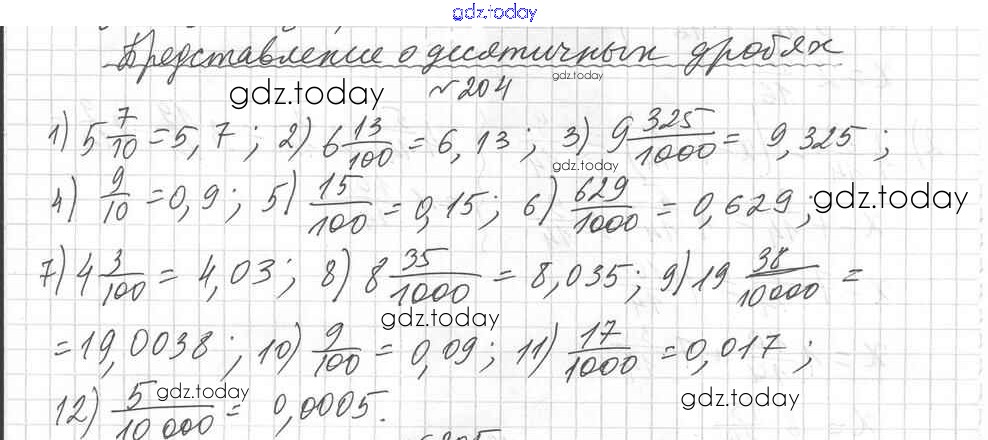 gdz.today
Представление о десятичных дробях
gdz.today
№204
gdz.today
1) 5 7/10 = 5,7; 2) 6 13/100 = 6,13; 3) 9 325/1000 = 9,325;
gdz.today
4) 9/10 = 0,9; 5) 15/100 = 0,15; 6) 629/1000 = 0,629;
gdz.today
7) 4 3/100 = 4,03; 8) 8 35/1000 = 8,035; 9) 19 38/10000 =
gdz.today
= 19,0038; 10) 9/100 = 0,09; 11) 17/1000 = 0,017;
gdz.today
gdz.today
12) 5/10 000 = 0,0005.